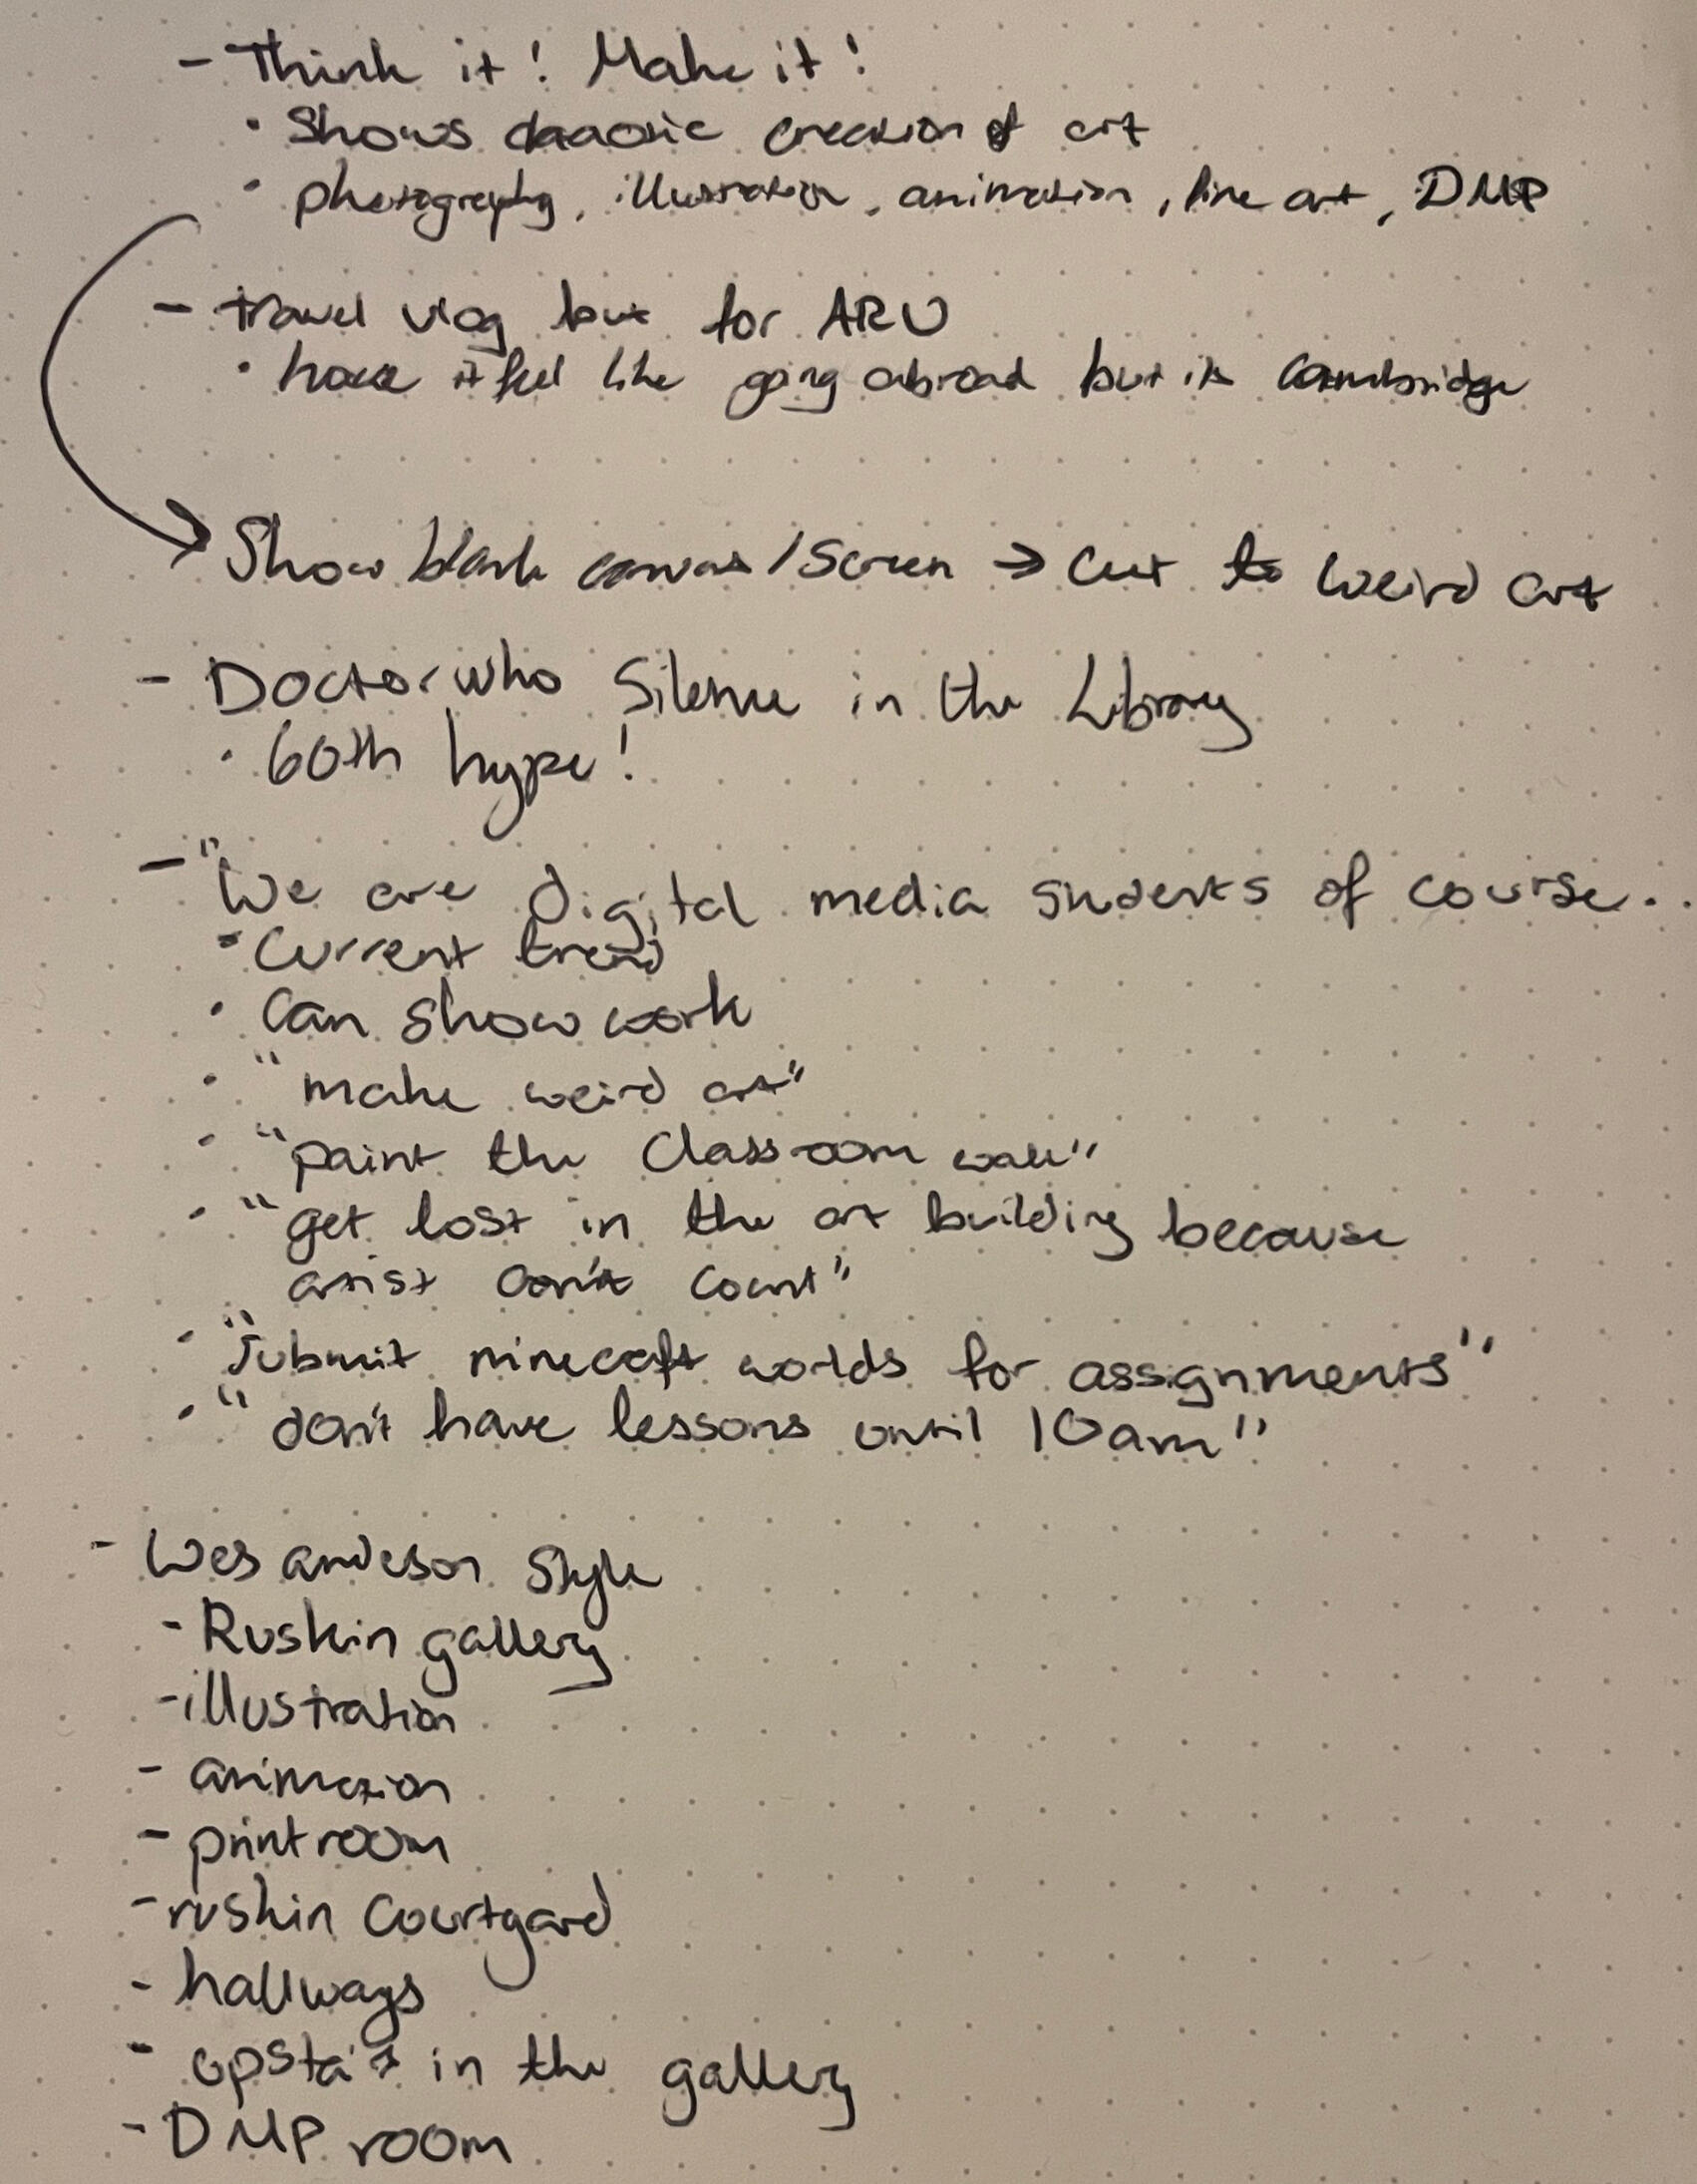 - Think it! Make it!
• Shows creation of art
• photography, illustration, animation, fine art, DMP
- travel vlog but for ARU
• have it feel like going abroad but its Cambridge
→ Show blank canvas / screen → cut to weird art
- Doctor who Silence in the Library
• 60th hype!
- "We are digital media students of course..
• Current trend
• Can show work
• "make weird art"
• "paint the classroom wall"
• "get lost in the art building because
artist can't count"
• "submit minecraft worlds for assignments"
• "don't have lessons until 10am"
- Wes anderson style
- Ruskin gallery
- illustration
- animation
- print room
- ruskin courtyard
- hallways
- upstairs in the gallery
- DMP room